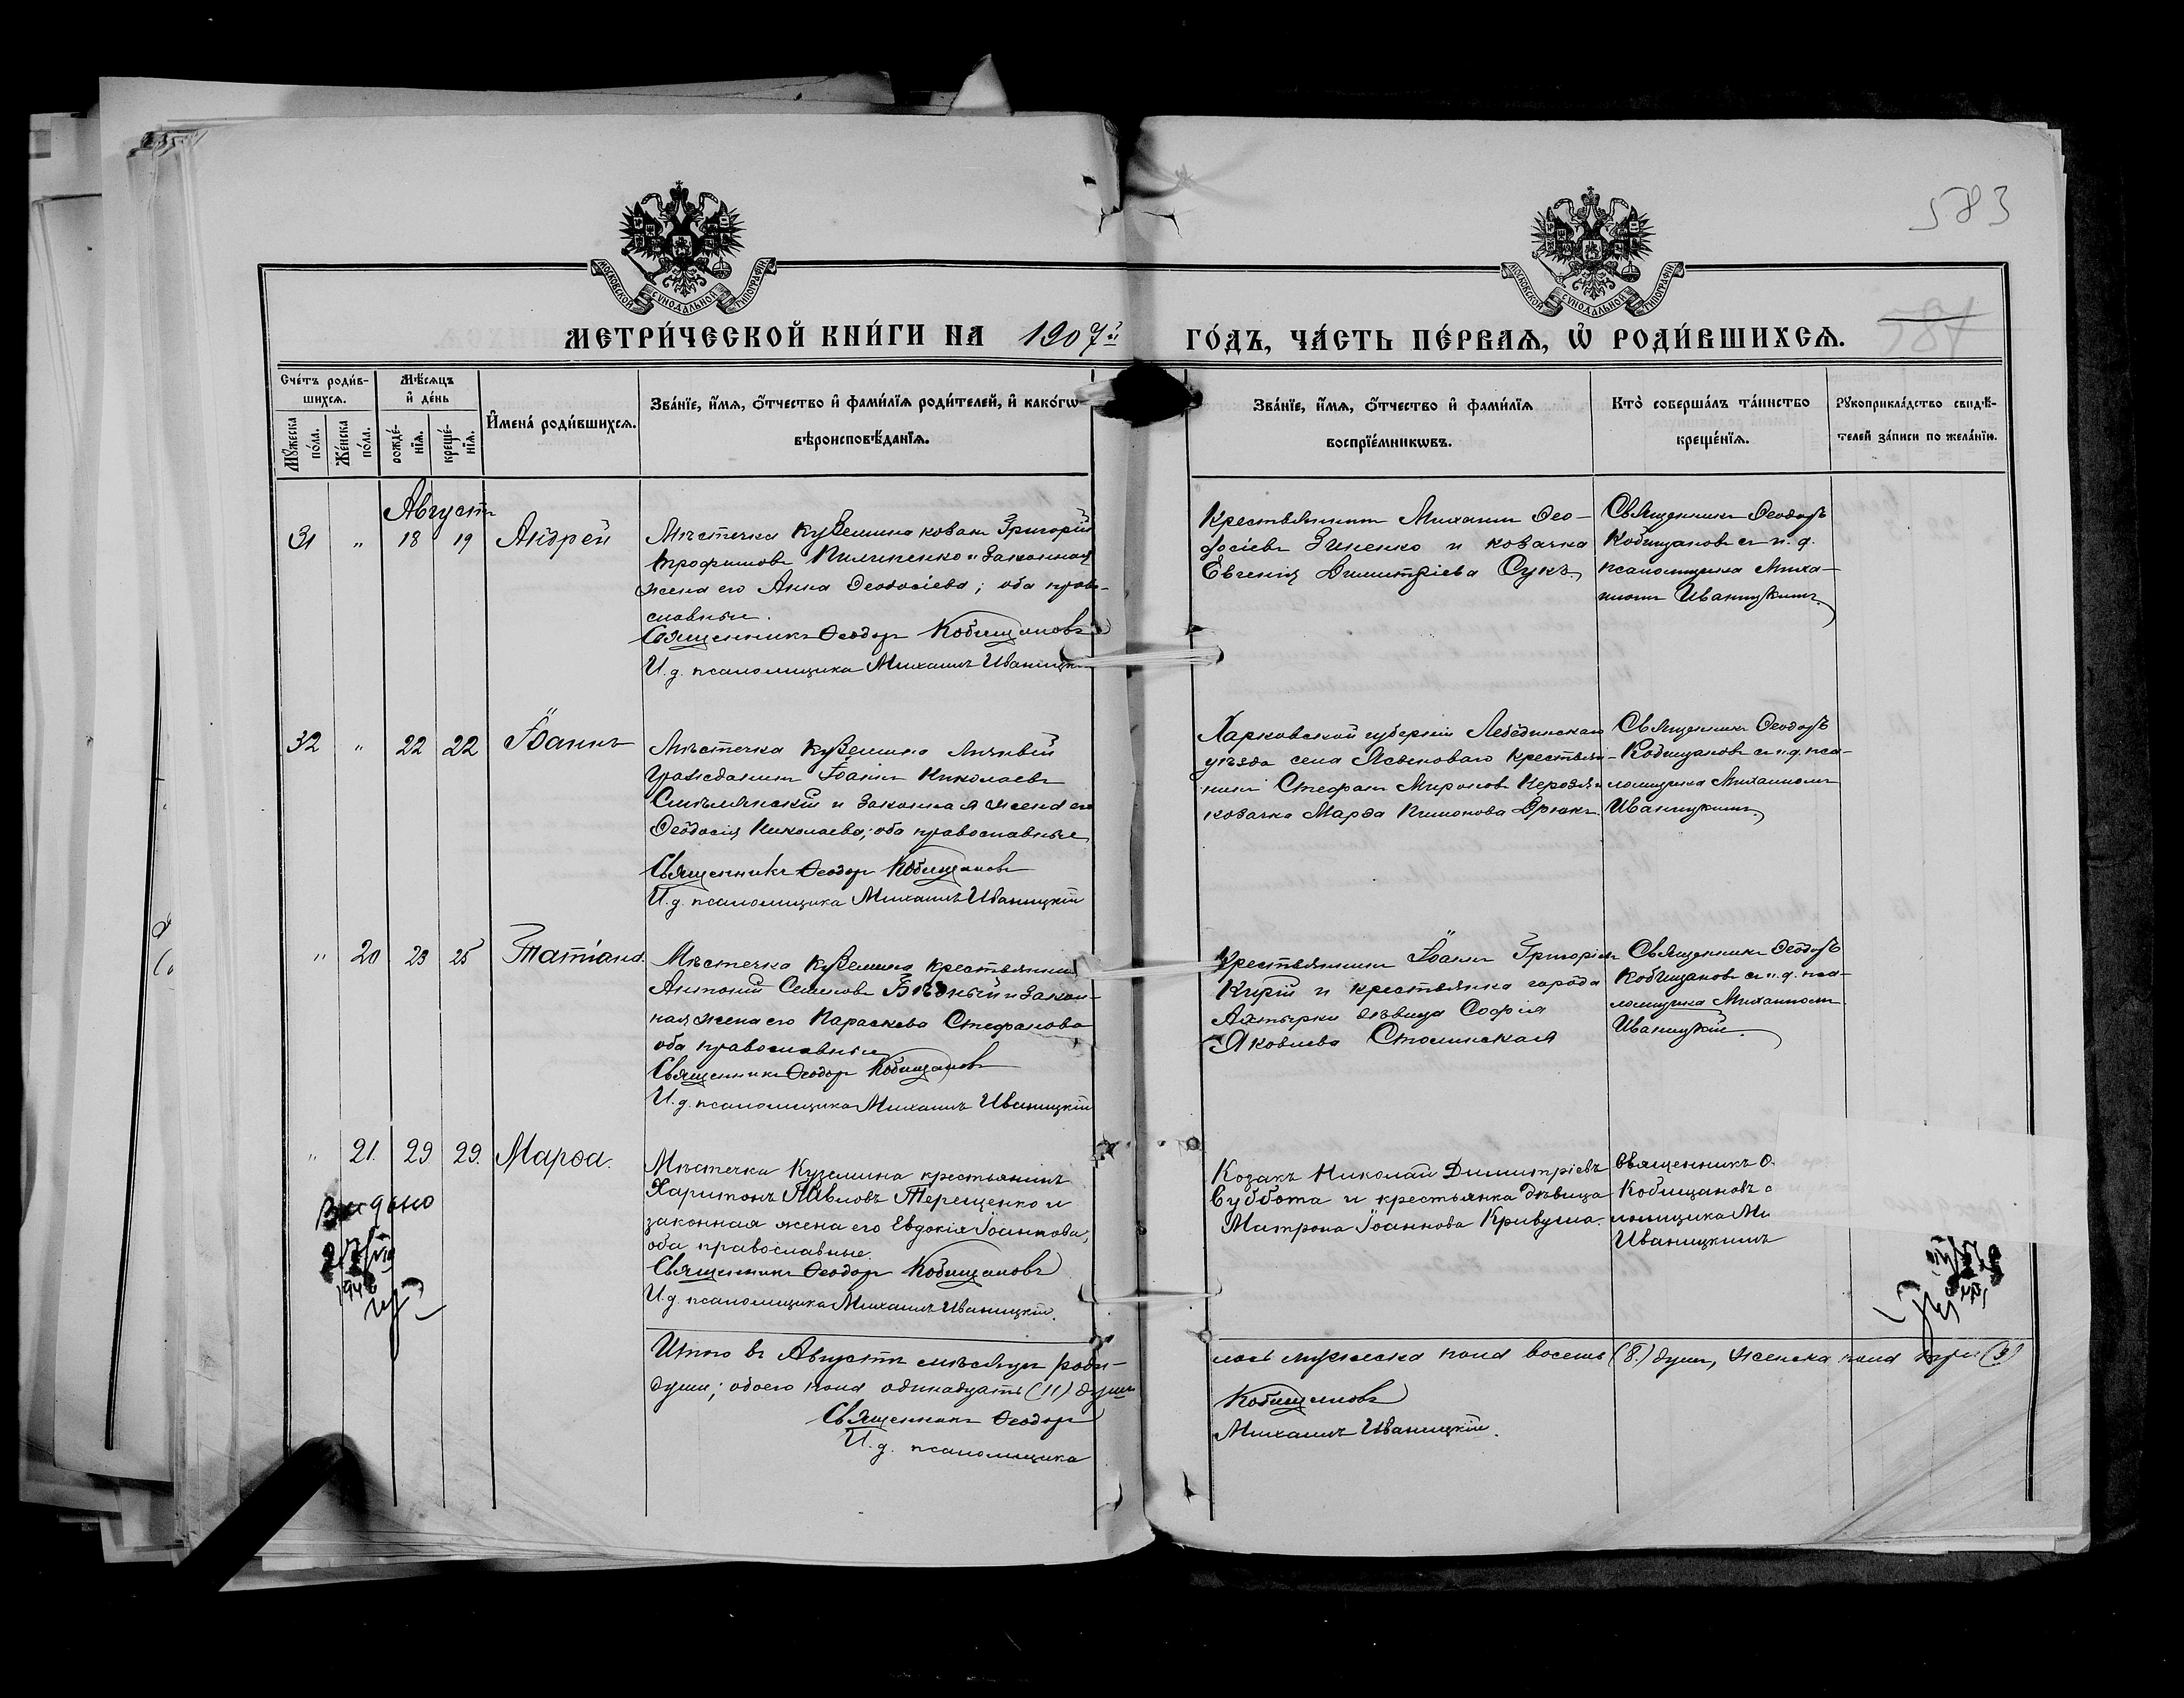 583
584
МОСКОВСКОЙ СѴНОДАЛЬНОЙ ТИПОГРАФІИ
МОСКОВСКОЙ СѴНОДАЛЬНОЙ ТИПОГРАФІИ
МЕТРИ́ЧЕСКОЙ КНИ́ГИ НА 1907й ГО́ДЪ, ЧА́СТЬ ПЕ́РВАѦ, Ѡ҆ РОДИ́ВШИХСѦ.
Сче́тъ роди́в-
шихсѧ.
Мѣ́сѧцъ
и҆ де́нь
Мꙋ́жеска
по́ла.
Же́нска
по́ла.
рожде́-
нїѧ.
креще́-
нїѧ.
И҆мена̀ роди́вшихсѧ.
Зва́нїе, и҆́мѧ, ѻ҆́тчество и҆ фами́лїѧ роди́телей, и҆ како́гѡ
вѣроисповѣ́данїѧ.
Зва́нїе, и҆́мѧ, ѻ҆́тчество и҆ фами́лїѧ
воспрїе́мникѡвъ.
Кто̀ соверша́лъ та́инство
креще́нїѧ.
Рꙋкоприкла́дство свидѣ́-
телей за́писи по жела́нїю.
Августъ
31 " 18 19 Андрей
Мѣстечка Куземина козакъ Григорій
Трофимовъ Пилипенко и законная
жена его Анна Ѳеодосіева; оба право-
славные.
Священникъ Ѳеодоръ Кобищановъ
И. д. псаломщика Михаилъ Иваницкі
Крестьянинъ Михаилъ Ѳео-
досіевъ Зиненко и козачка
Евгенія Димитріева Сукъ.
Священникъ Ѳеодоръ
Кобищановъ съ и. д.
псаломщика Миха-
иломъ Иваницкимъ.
32 " 22 22 Іоаннъ
Мѣстечка Куземина Личный
Гражданинъ Іоаннъ Николаевъ
Смѣлянскій и законная жена его
Ѳеодосія Николаева; оба православные
Священникъ Ѳеодоръ Кобищановъ
И. д. псаломщика Михаилъ Иваницкій
Харковской губерніи Лебединскаго
уѣзда села Ясеноваго крестьяни-
нъ Стефанъ Мироновъ
козачка Марѳа Пимонова
Священникъ Ѳеодоръ
Кобищановъ съ и. д. пса-
ломщика Михаиломъ
Иваницкимъ.
" 20 23 25 Татіана.
Мѣстечка Куземина крестьянинъ
Антоній Семеновъ Бѣдный и закон-
ная жена его Параскева Стефанова
оба православные
Священникъ Ѳеодоръ Кобищановъ
И. д. псаломщика Михаилъ Иваницкій
Крестьянинъ Іоаннъ Григоріевъ
Кирій и крестьянка города
Ахтырки дѣвица Софія
Яковлева Столинская
Священникъ Ѳеодоръ
Кобищановъ съ и. д. пса-
ломщика Михаиломъ
Иваницкій.
" 21. 29 29. Марѳа.
Мѣстечка Куземина крестьянинъ
Харитонъ Павловъ Терещенко и
законная жена его Евдокія Іоаннова,
оба православные.
Священникъ Ѳеодоръ Кобищановъ
И. д. псаломщика Михаилъ Иваницкій.
Козакъ Николай Димитріевъ
Суббота и крестьянка дѣвица
Матрона Іоаннова Кривуша.
Священникъ Ѳ.
Кобищановъ с
ломщика Ми
Иваницкимъ
Видано
Итого въ Августѣ мѣсяцѣ роди-лось мужеска пола восемь (8.) душъ, женска пола три (3)
души; обоего пола одинадцать (11) душъ
Священникъ Ѳеодоръ Кобищановъ
И. д. псаломщика Михаилъ Иваницкій.